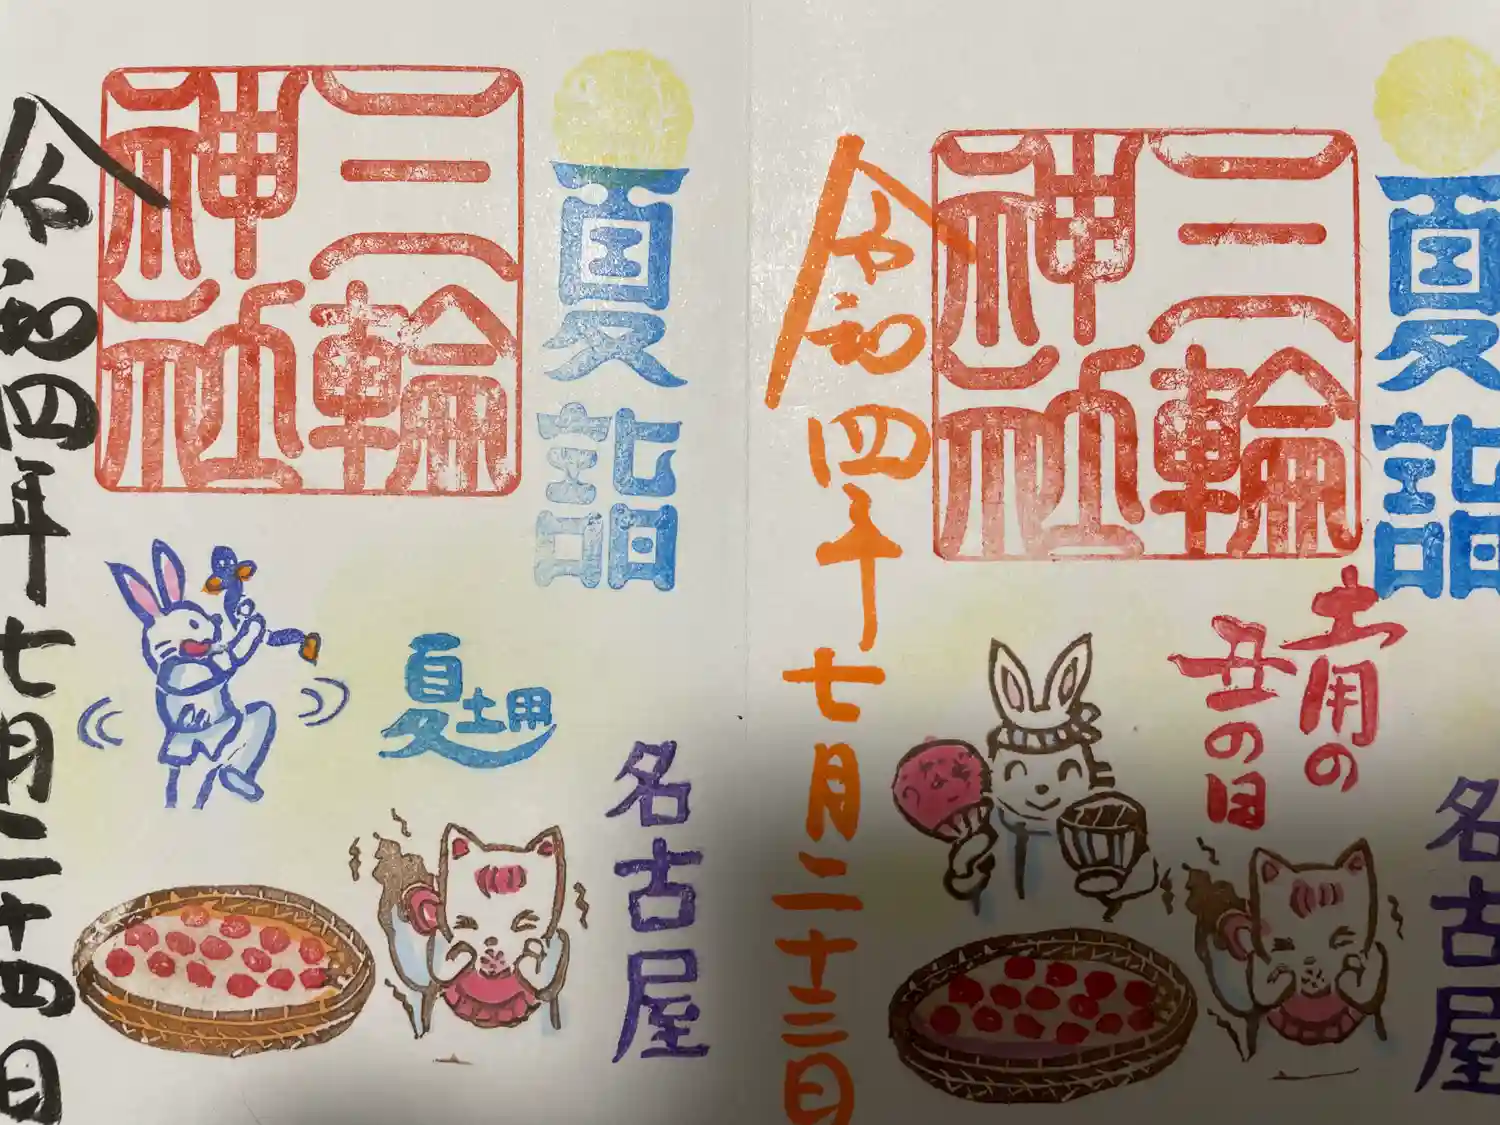 夏詣
三輪
神社
夏土用
名古屋
令和四年七月二十四日
夏詣
三輪
神社
土用の
丑の日
名古屋
令和四年七月二十三日